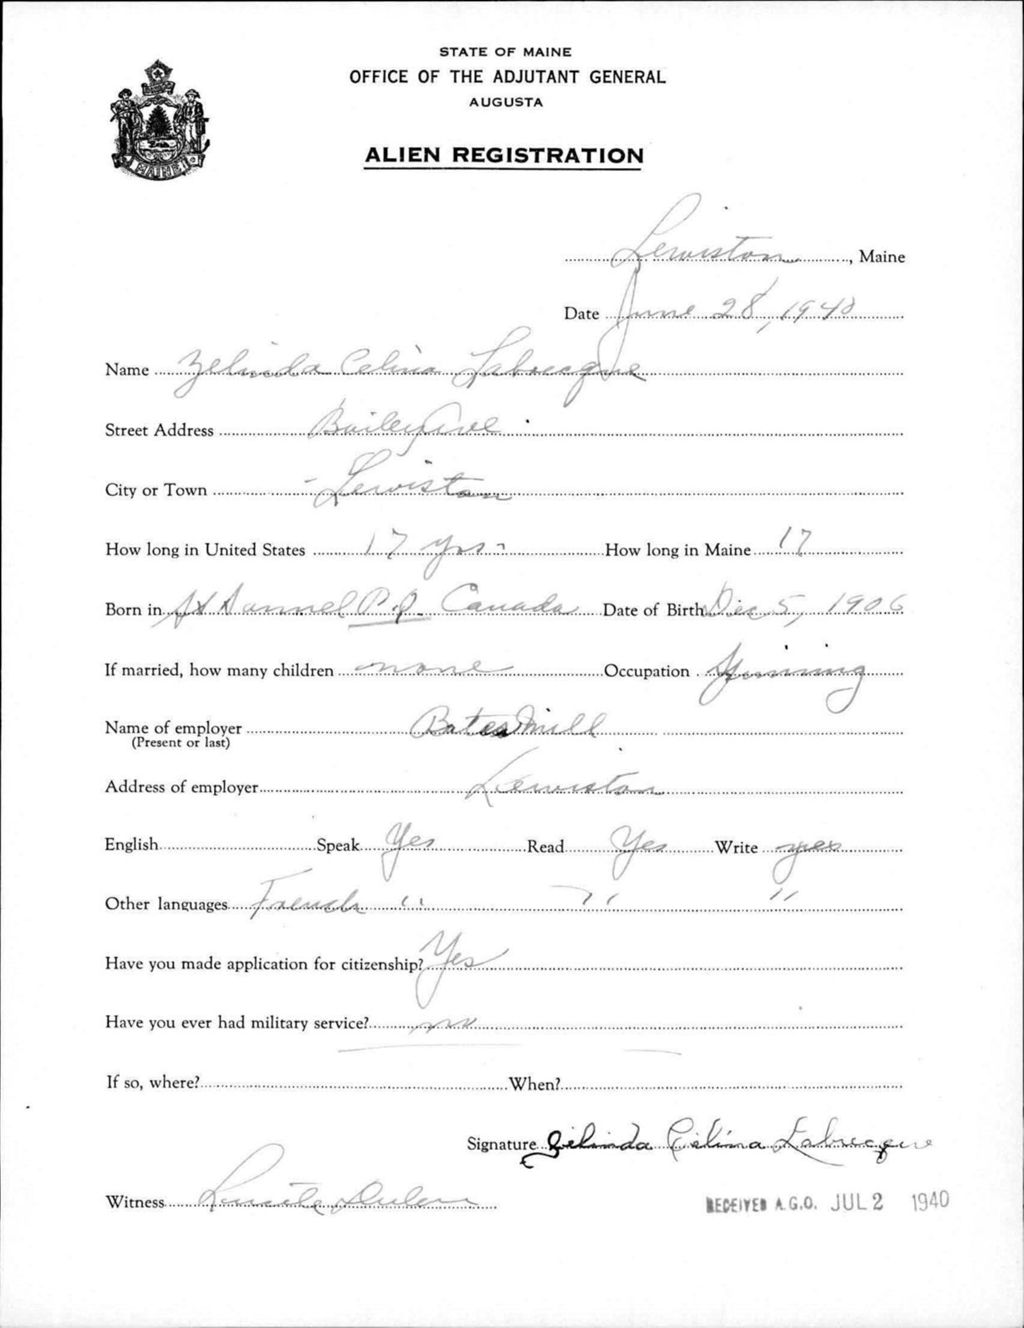 STATE OF MAINE
OFFICE OF THE ADJUTANT GENERAL
AUGUSTA
MAINE
ALIEN REGISTRATION
Lewiston, Maine
Date June 28, 1940
Name Zelinda Celina Labrecque
Street Address Bailey Ave
City or Town Lewiston
How long in United States 17 yrs. How long in Maine 17
Born in St P.Q. Canada Date of Birth Dec 5, 1906
If married, how many children none Occupation Spinning
Name of employer Bates Mill
(Present or last)
Address of employer Lewiston
English Speak Yes Read Yes Write yes
Other languages French " " "
Have you made application for citizenship? Yes
Have you ever had military service? no
If so, where? When?
Signature Zelinda Celina Labrecque
Witness
RECEIVED A.G.O. JUL 2 1940